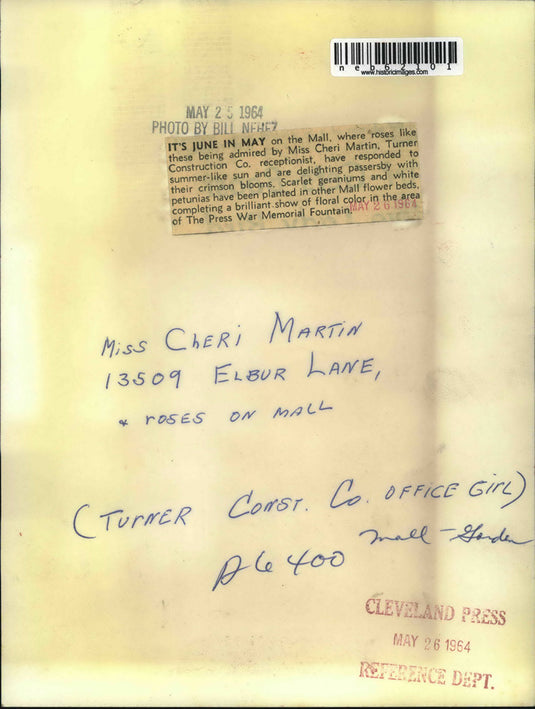 neb62101
www.historicimages.com
MAY 25 1964
PHOTO BY BILL NEHEZ
IT'S JUNE IN MAY on the Mall, where roses like
these being admired by Miss Cheri Martin, Turner
Construction Co. receptionist, have responded to
summer-like sun and are delighting passersby with
their crimson blooms. Scarlet geraniums and white
petunias have been planted in other Mall flower beds,
completing a brilliant show of floral color in the area
of The Press War Memorial Fountain.
MAY 26 1964
Miss CHERi MARTIN
13509 ELBUR LANE,
& ROSES ON MALL
(TURNER CONST. CO. OFFICE GIRL)
Mall - Garden
CLEVELAND PRESS
MAY 26 1964
REFERENCE DEPT.